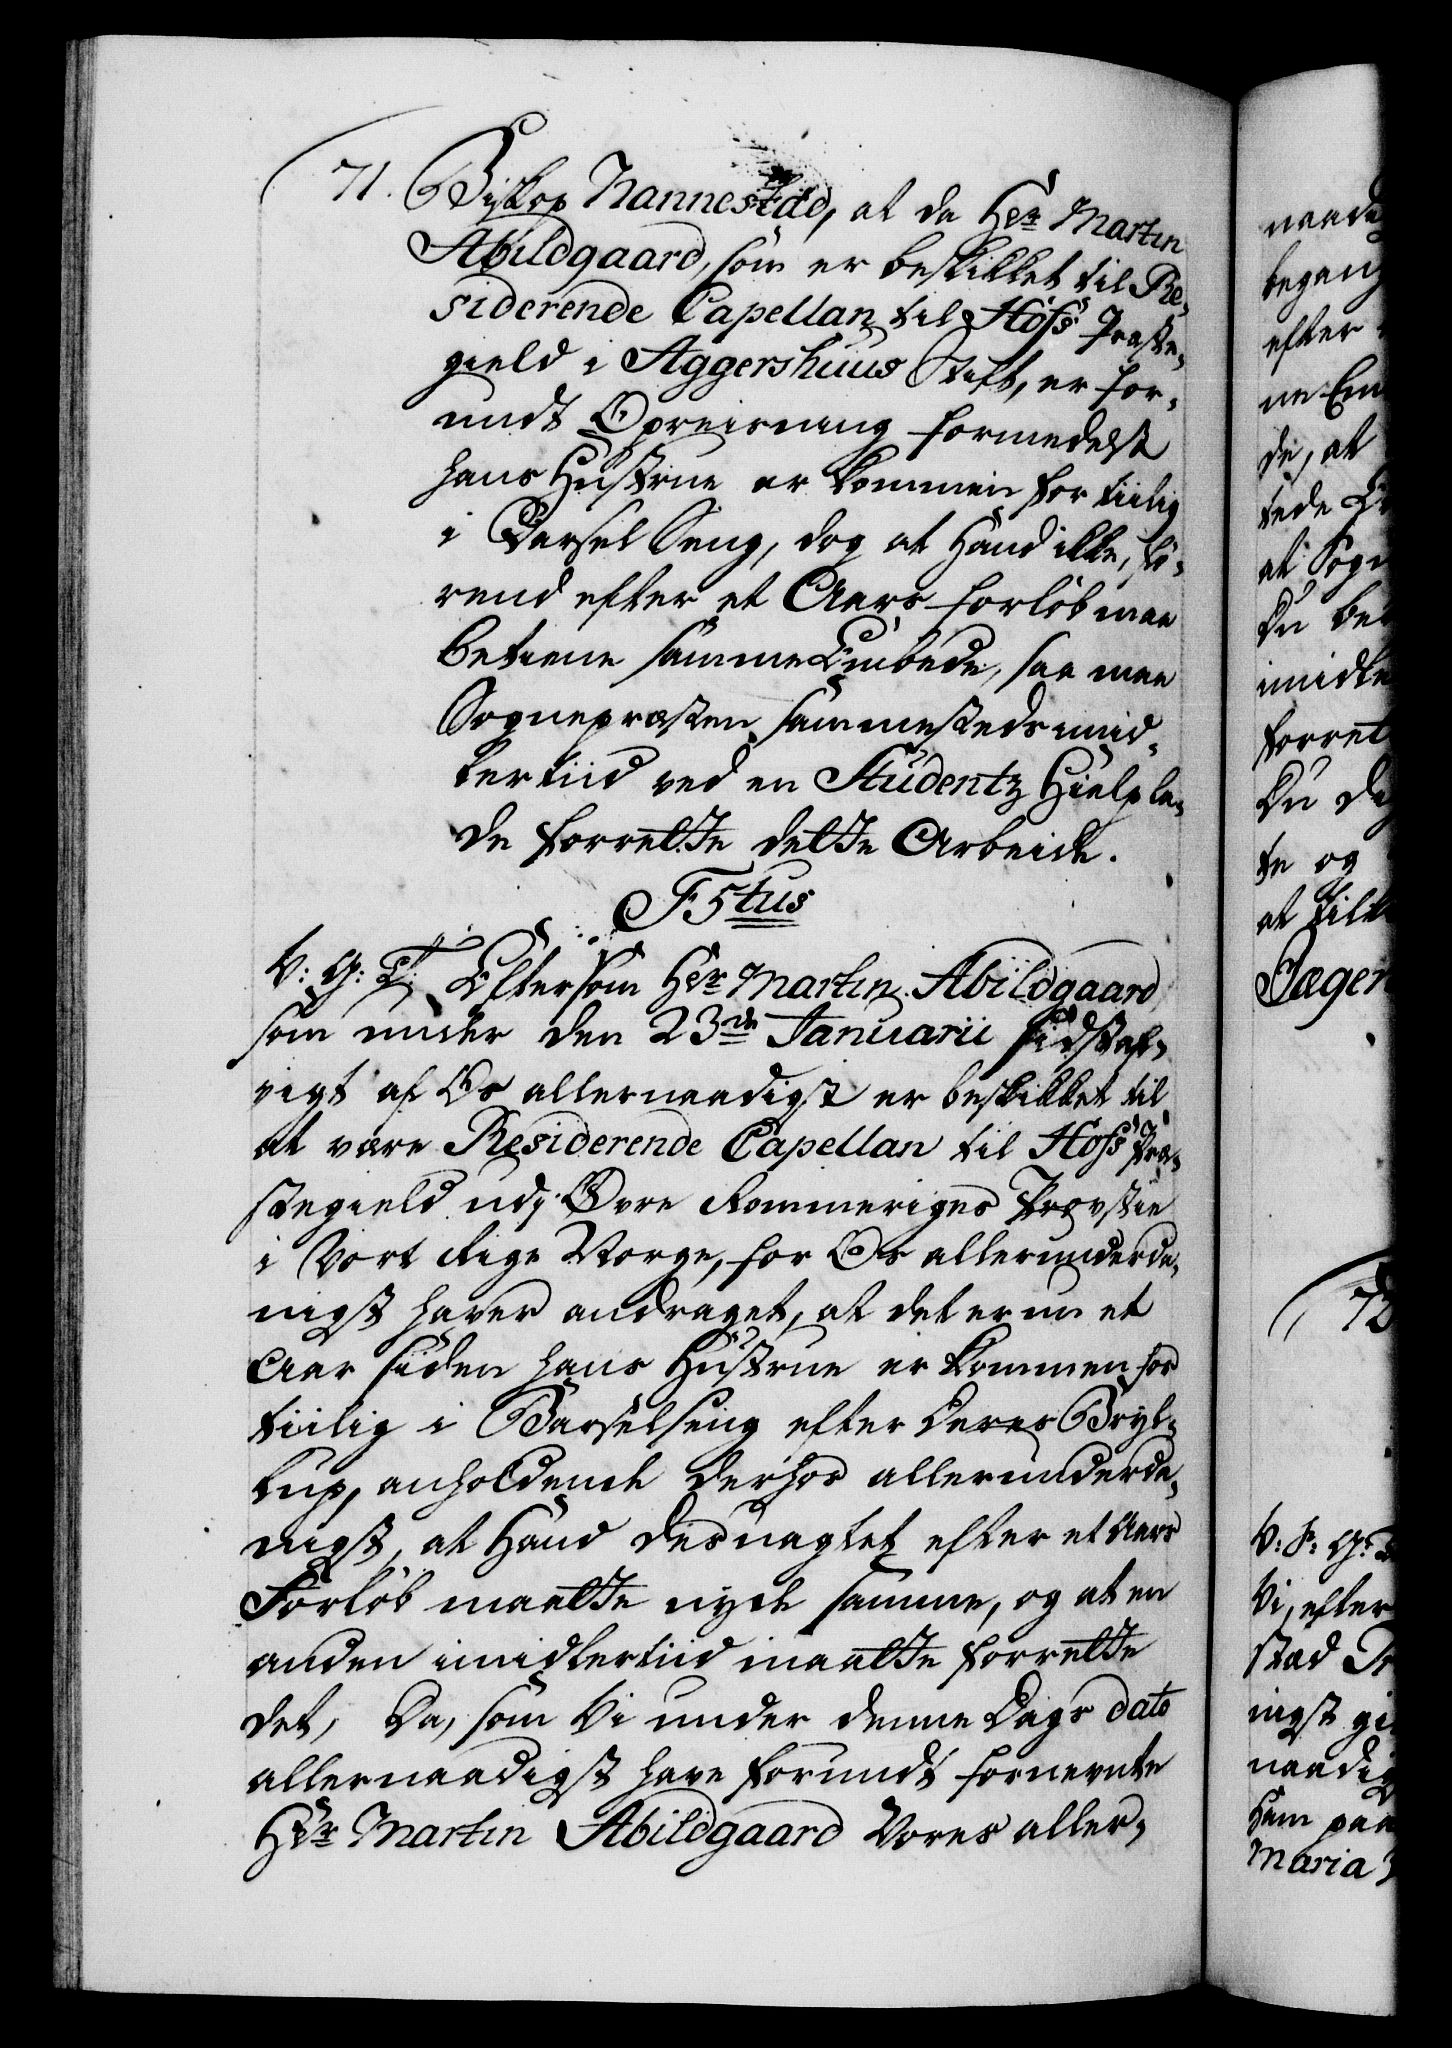 71. Biskop Nannestad, at da Hr Martin
Abildgaard, som er beskikket til Re-
siderende Capellan til Hofs Præste-
gield i Aggershuus Stift, er for-
undt Opreisning formedelst
hans Hustrue er kommen for tiilig
i Barsel Seng, dog at Hand ikke, fø-
rend efter et Aars forløb maa
betiene samme Embede, saa maa
Sognepræsten sammesteds imid-
lertiid ved en Studentz Hielp la-
de forrette dette Arbeide.
F 5tus
V: G: T: Eftersom Hr Martin Abildgaard
som under den 23de Januarii sidstaf-
vigt af Os allernaadigst er beskikket til
at være Residerende Capellan til Hofs Præ-
stegield udj Øvre Rommeriges Provstie
i Vort Rige Norge, for Os allerunderda-
nigst haver andraget, at det er nu et
Aar siden hans Hustrue er kommen for
tiilig i Barselseng efter deres Bryl-
lup, anholdende derhos allerunderda-
nigst, at Hand desuagtet efter et Aars
Forløb maatte nyde samme, og at en
anden imidlertiid maatte forrette
det, Da, som Vi under denne Dags dato
allernaadigst have forundt fornevnte
Hr Martin Abildgaard Vores aller-
naade
begen
efter
ne Em
de, at
tede
at Sogn
Du be
imidle
forret
Du
te og
at tilk
Jæger
72
V: F: G:
Vi, efter
stad
nigst gi
naadig
Ham paa
Maria